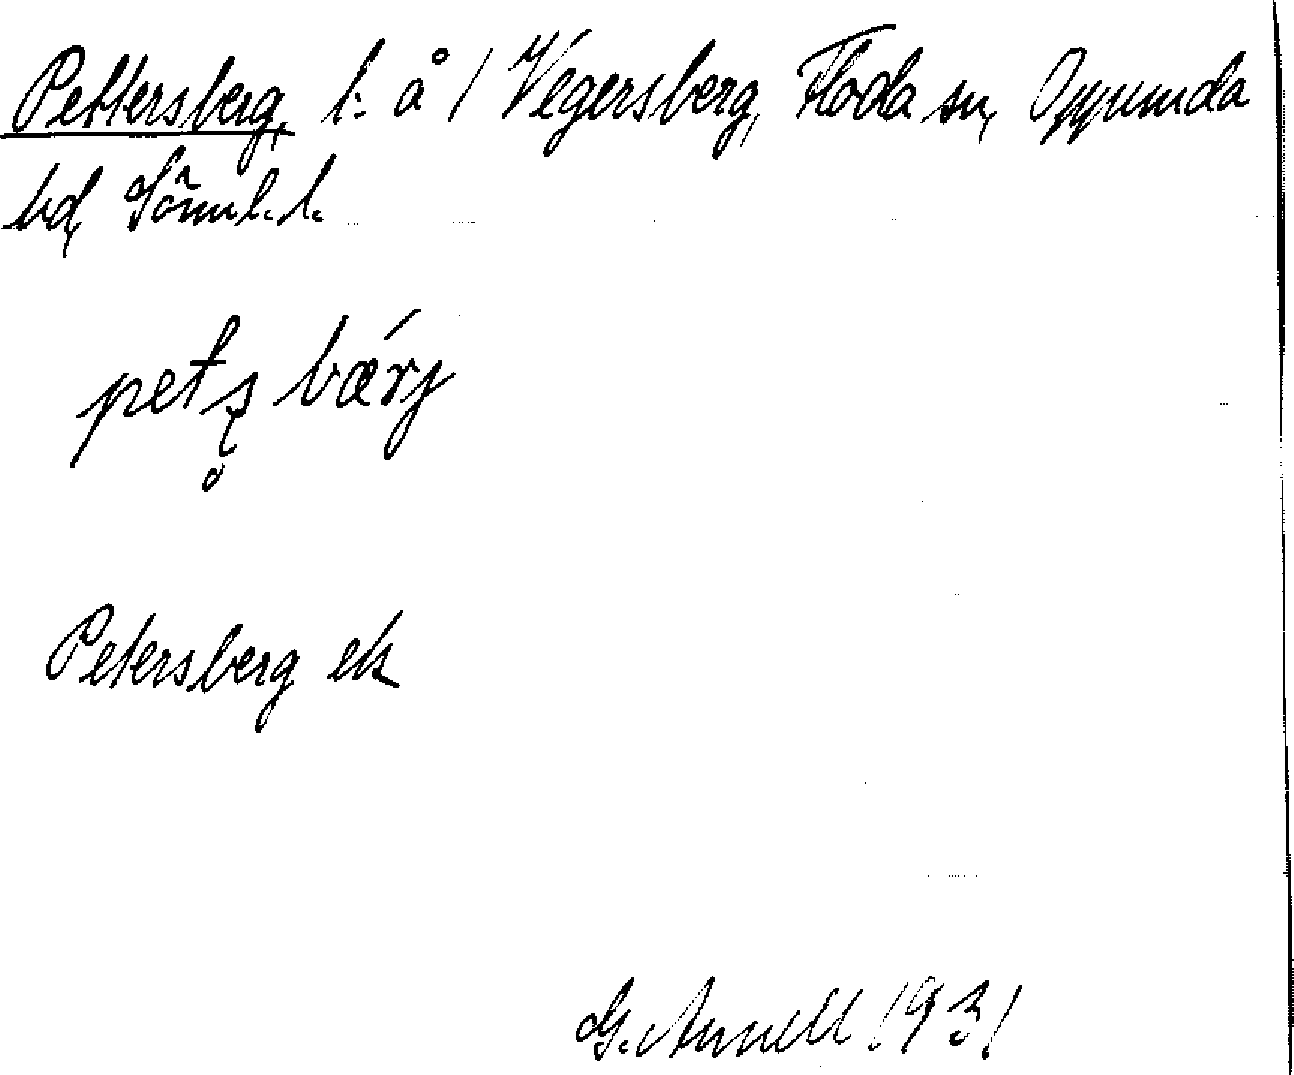 Pettersberg, t. å 1 Vegersberg, Floda sn, Oppunda
hd, Sörml. l.
petʂ̥ bǽrj
Petersberg ek
G. Annell 1931